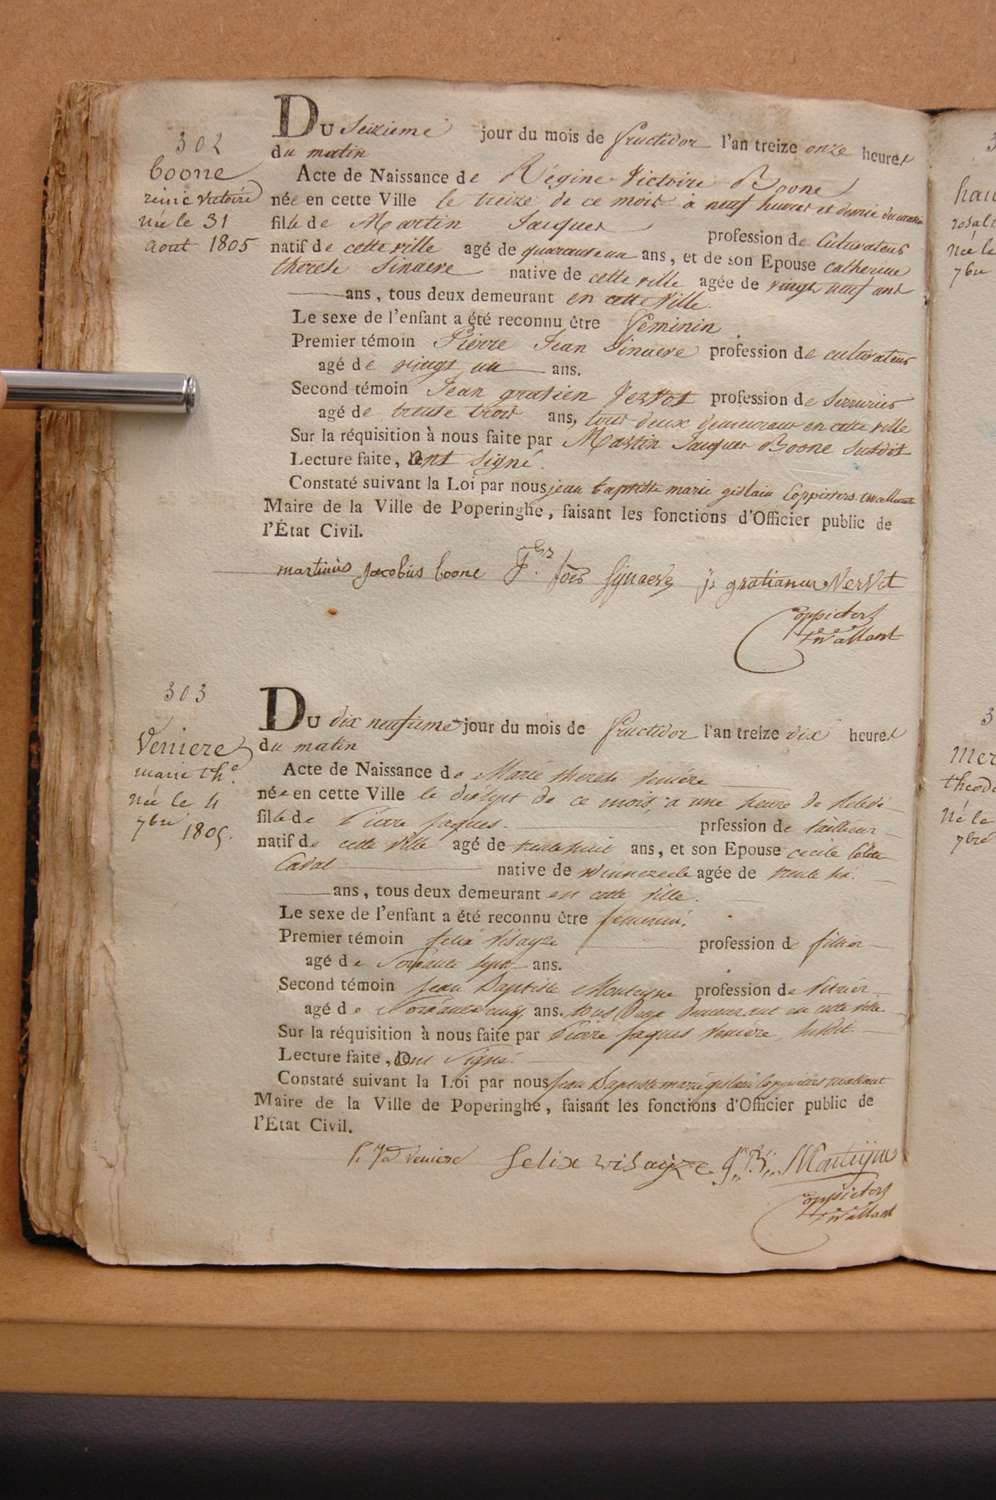 302
boone
reine victoire
née le 31
aout 1805
Du Seizieme jour du mois de fructidor l'an treize onze heures
du matin
Acte de Naissance de Régine Victoire Boone
née en cette Ville le treize de ce mois à neuf heures et demie du matin
fille de Martin Jacques profession de Cultivateur
natif de cette ville agé de quarante un ans, et de son Epouse catherine
therese Sinaeve native de cette ville agée de vingt neuf ans
ans, tous deux demeurant en cette Ville.
Le sexe de l'enfant a été reconnu être Feminin
Premier témoin Pierre Jean Sinaeve profession de cultivateur
agé de vingt un ans.
Second témoin Jean gratien Vervot profession de Serrurier
agé de trente trois ans, tous deux demeurant en cette ville
Sur la réquisition à nous faite par Martin Jacques Boone Susdit
Lecture faite, ont signé.
Constaté suivant la Loi par nous jean baptiste marie gislain Coppieters wallant
Maire de la Ville de Poperinghe, faisant les fonctions d'Officier public de
l'État Civil.
martinus jacobus boone P. joës Synaeve j: gratianus Vervot
Coppieters
wallant
303
Veniere
marie the
née le 4
7bre 1805.
Du dix neufieme jour du mois de fructidor l'an treize dix heures
du matin
Acte de Naissance de Marie therese Veniére
née en cette Ville le dixsept de ce mois à une heure de relevé
fille de Pierre jaques prfession de tailleur
natif de cette ville agé de trente huit ans, et son Epouse cecile Colete
Cadal native de winnezeele agée de trente six
ans, tous deux demeurant en cette ville.
Le sexe de l'enfant a été reconnu être femenin.
Premier témoin felix Visayze profession d filtier
agé de Soixante sept ans.
Second témoin jean Baptiste Monteyne profession de
agé de Soixante cinq ans. tous deux demeurant en cette ville
Sur la réquisition à nous faite par Pierre jaques Veniere susdit
Lecture faite, ont Signé.
Constaté suivant la Loi par nous jean Baptiste marie gislain Coppieters wallant
Maire de la Ville de Poperinghe, faisant les fonctions d'Officier public de
l'État Civil.
veniere felix visayze J: B: Monteijne
Coppieters
wallant
3
hau
rosali
née le
7bre
3
Mer
theodo
Né le
7bre